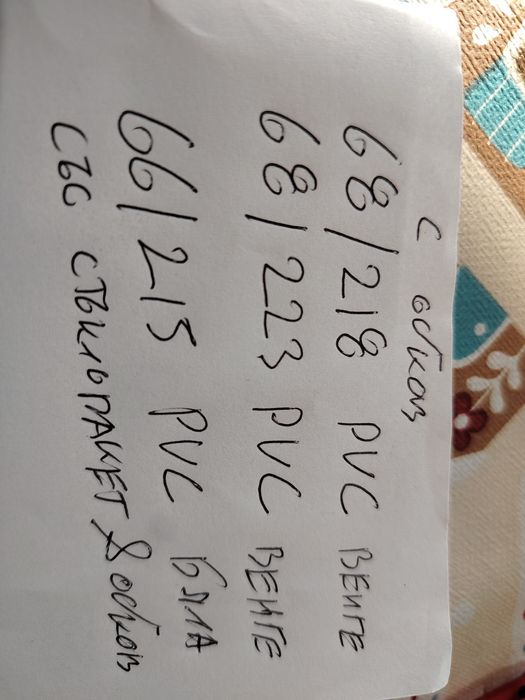 с обков
68/218 PVC ВЕНГЕ
68/223 PVC ВЕНГЕ
66/215 PVC БЯЛА
СЪС СТЪКЛОПАКЕТ & обков